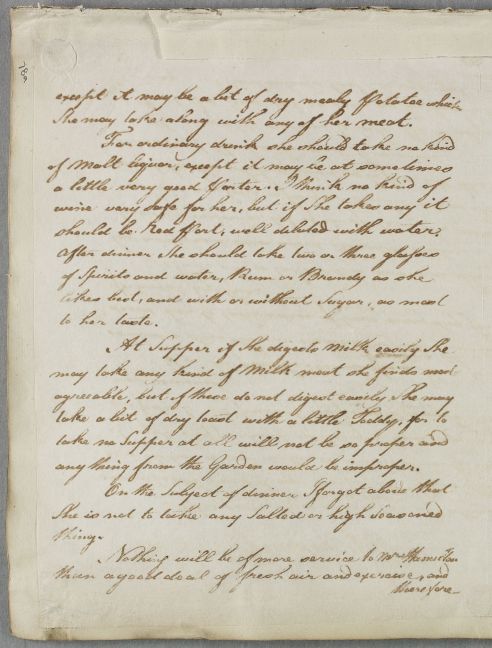 789
except it may be a bit of dry mealy Potatoe which
She may take along with any of her meat.
For ordinary drink she should take no kind
of Malt liquor, except it may be at sometimes
a little very good Porter. I think no kind of
wine very safe for her, but if She takes any it
should be Red Port, well diluted with water.
After dinner She should take two or three glasses
of Spirits and water, Rum or Brandy as she
likes best, and with or without Sugar, as most
to her taste.
At Supper if She digests Milk easily She
may take any kind of Milk meat she finds most
agreeable, but if these do not digest easily She may
take a bit of dry toast with a little Toddy, for to
take no Supper at all will not be so proper and
any thing from the Garden would be improper.
On the Subject of dinner I forgot above that
She is not to take any Salted or high Seasoned
things.
Nothing will be of more service to Mrs
than a good deal of fresh air and exercise, and
therefore